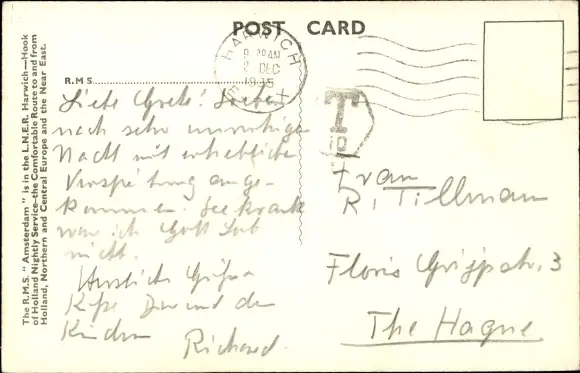 POST CARD
HARWICH
9 30 AM
2 DEC
1935
T
10
R.M.S.
Liebe Grete! Soeben
nach sehr unruhiger
Nacht mit erheblicher
Verspätung ange-
kommen. Seekrank
war ich Gott Lob
nicht.
Herzlich Grüße
Küße Dir und den
Kindern
Richard.
Frau
R. Tillman
Floris Grijpstr. 3
The Hague
The R.M.S. "Amsterdam" is in the L.N.E.R. Harwich—Hook
of Holland Nightly Service—the Comfortable Route to and from
Holland, Northern and Central Europe and the Near East.